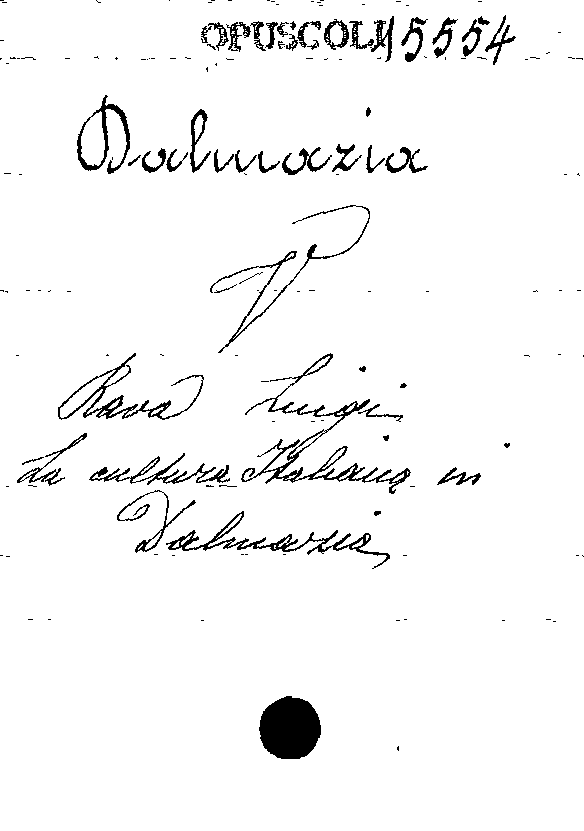 OPUSCOLI 15554
Dalmazia
V
Rava Luigi
La cultura Italiana in
Dalmazia